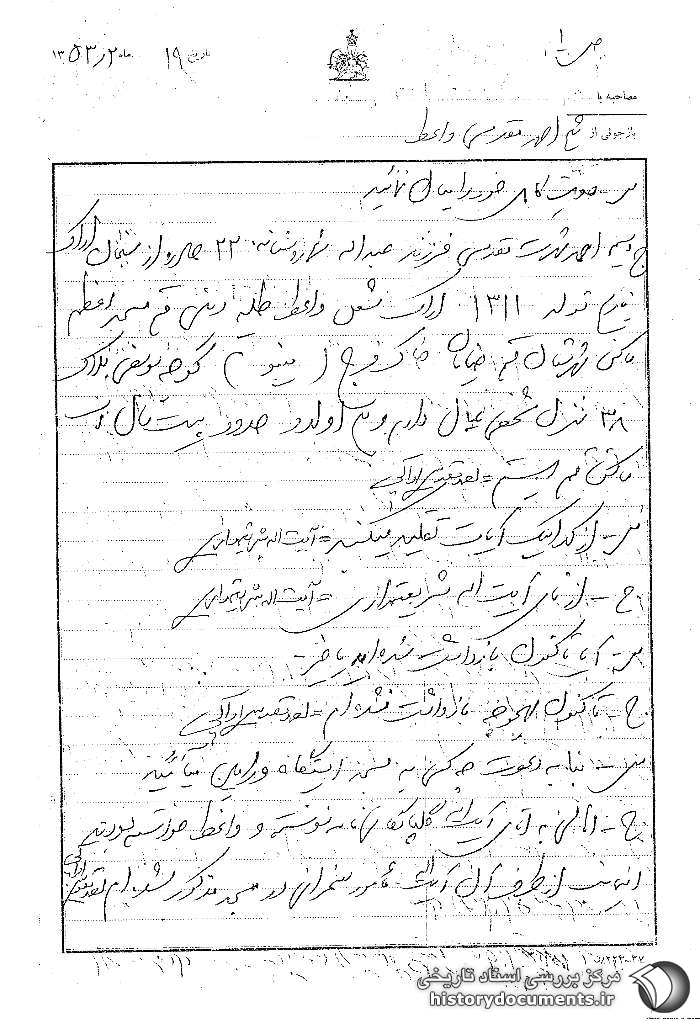 ص ۱
تاریخ ۱۹ ماه ۲ ر ۱۳۵۳
مصاحبه با
بازجوئی از شیخ احمد مقدسی واعظ
س – هویت کامل خود را بیان نمائید
ج – اسم احمد شهرت مقدسی فرزند عبداله شماره شناسنامه ۲۲ صادره از سنجان اراک
تاریخ تولد ۱۳۱۱ اراک شغل واعظ طلبه دینی قم مسجد اعظم
ساکن شهرستان قم خیابان خاک فرج ( مینو ) کوچه یوسفی پلاک
۳۸ منزل شخصی عیال دارم و اولاد و حدود بیست سال است
ساکن قم هستم = احمد مقدسی اراکی
س – از کدامیک آیات تقلید میکنید = آیت اله شریعتمداری
ج – از آقای آیت اله شریعتمداری = آیت اله شریعتمداری
س – آیا تاکنون بازداشت شده اید یا خیر –
ج – تاکنون بهیچوجه بازداشت نشده ام = احمد مقدسی اراکی
س – بنا به دعوت چه کسی به مسجد ایستگاه ورامین میآئید
ج – اهالی به آقای آیت اله گلپایگانی نامه نوشته و واعظ خواسته بودند
اینجانب از طرف آن آیت اله مامور سخنرانی در مسجد مذکور شده ام مقدسی اراکی
مرکز بررسی اسناد تاریخی
historydocuments.ir